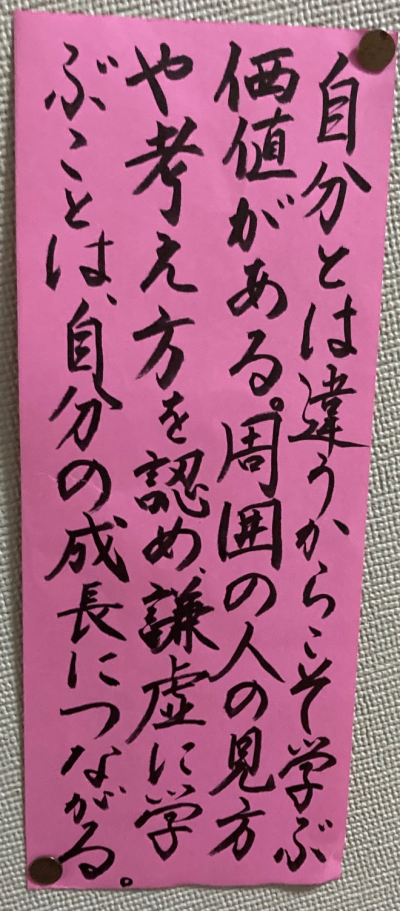 自分とは違うからこそ学ぶ
価値がある。周囲の人の見方
や考え方を認め、謙虚に学
ぶことは、自分の成長につながる。